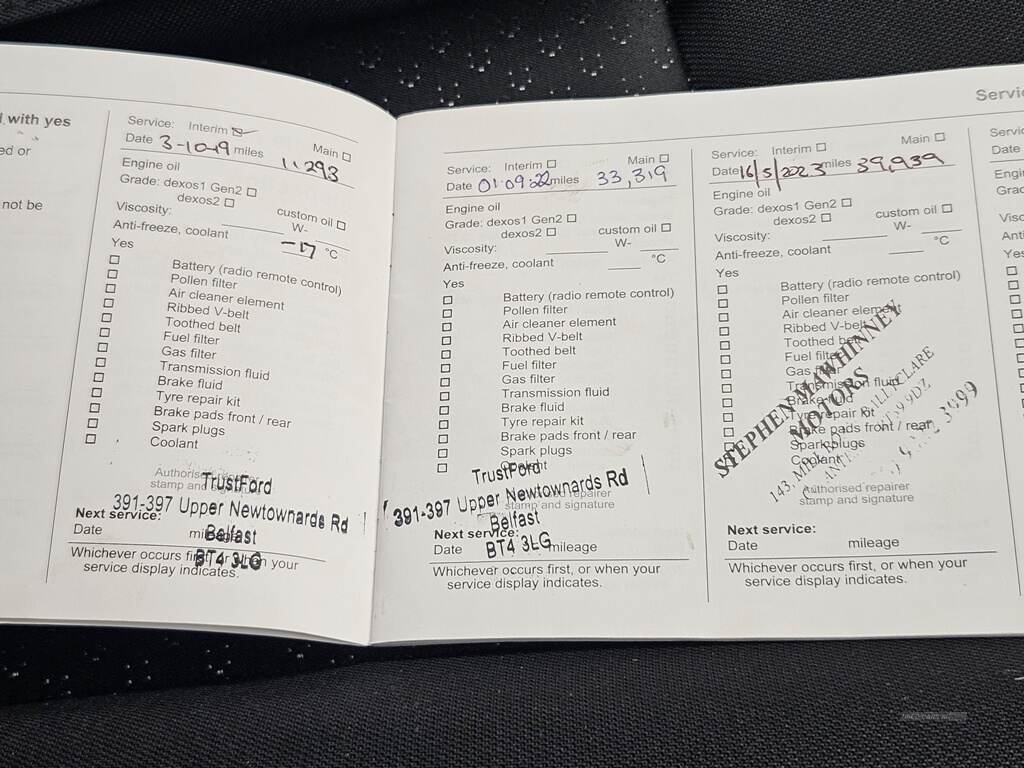 with yes
ed or
not be
Service: Interim
Date 3-10-19 miles 11293 Main
Engine oil
Grade: dexos1 Gen2
dexos2
Viscosity: custom oil
W-
Anti-freeze, coolant -17 °C
Yes
Battery (radio remote control)
Pollen filter
Air cleaner element
Ribbed V-belt
Toothed belt
Fuel filter
Gas filter
Transmission fluid
Brake fluid
Tyre repair kit
Brake pads front / rear
Spark plugs
Coolant
Authorised
stamp and
TrustFord
391-397 Upper Newtownards Rd
Belfast
BT4 3LG
Next service:
Date
Whichever occurs first, or when your
service display indicates.
Service: Interim Main
Date 01 09 22 miles 33,319
Engine oil
Grade: dexos1 Gen2
dexos2 custom oil
Viscosity: W-
Anti-freeze, coolant °C
Yes
Battery (radio remote control)
Pollen filter
Air cleaner element
Ribbed V-belt
Toothed belt
Fuel filter
Gas filter
Transmission fluid
Brake fluid
Tyre repair kit
Brake pads front / rear
Spark plugs
Coolant
repairer
stamp and signature
TrustFord
391-397 Upper Newtownards Rd
Belfast
BT4 3LG
Next service:
Date mileage
Whichever occurs first, or when your
service display indicates.
Service: Interim Main
Date 16/5/2023 miles 39,939
Engine oil
Grade: dexos1 Gen2
dexos2 custom oil
Viscosity: W-
Anti-freeze, coolant °C
Yes
Battery (radio remote control)
Pollen filter
Air cleaner element
Ribbed V-belt
Toothed belt
Fuel filter
Gas filter
Transmission fluid
Brake fluid
Tyre repair kit
Brake pads front / rear
Spark plugs
Coolant
STEPHEN MAWHINNEY
MOTORS
Authorised repairer
stamp and signature
Next service:
Date mileage
Whichever occurs first, or when your
service display indicates.
Date
Yes